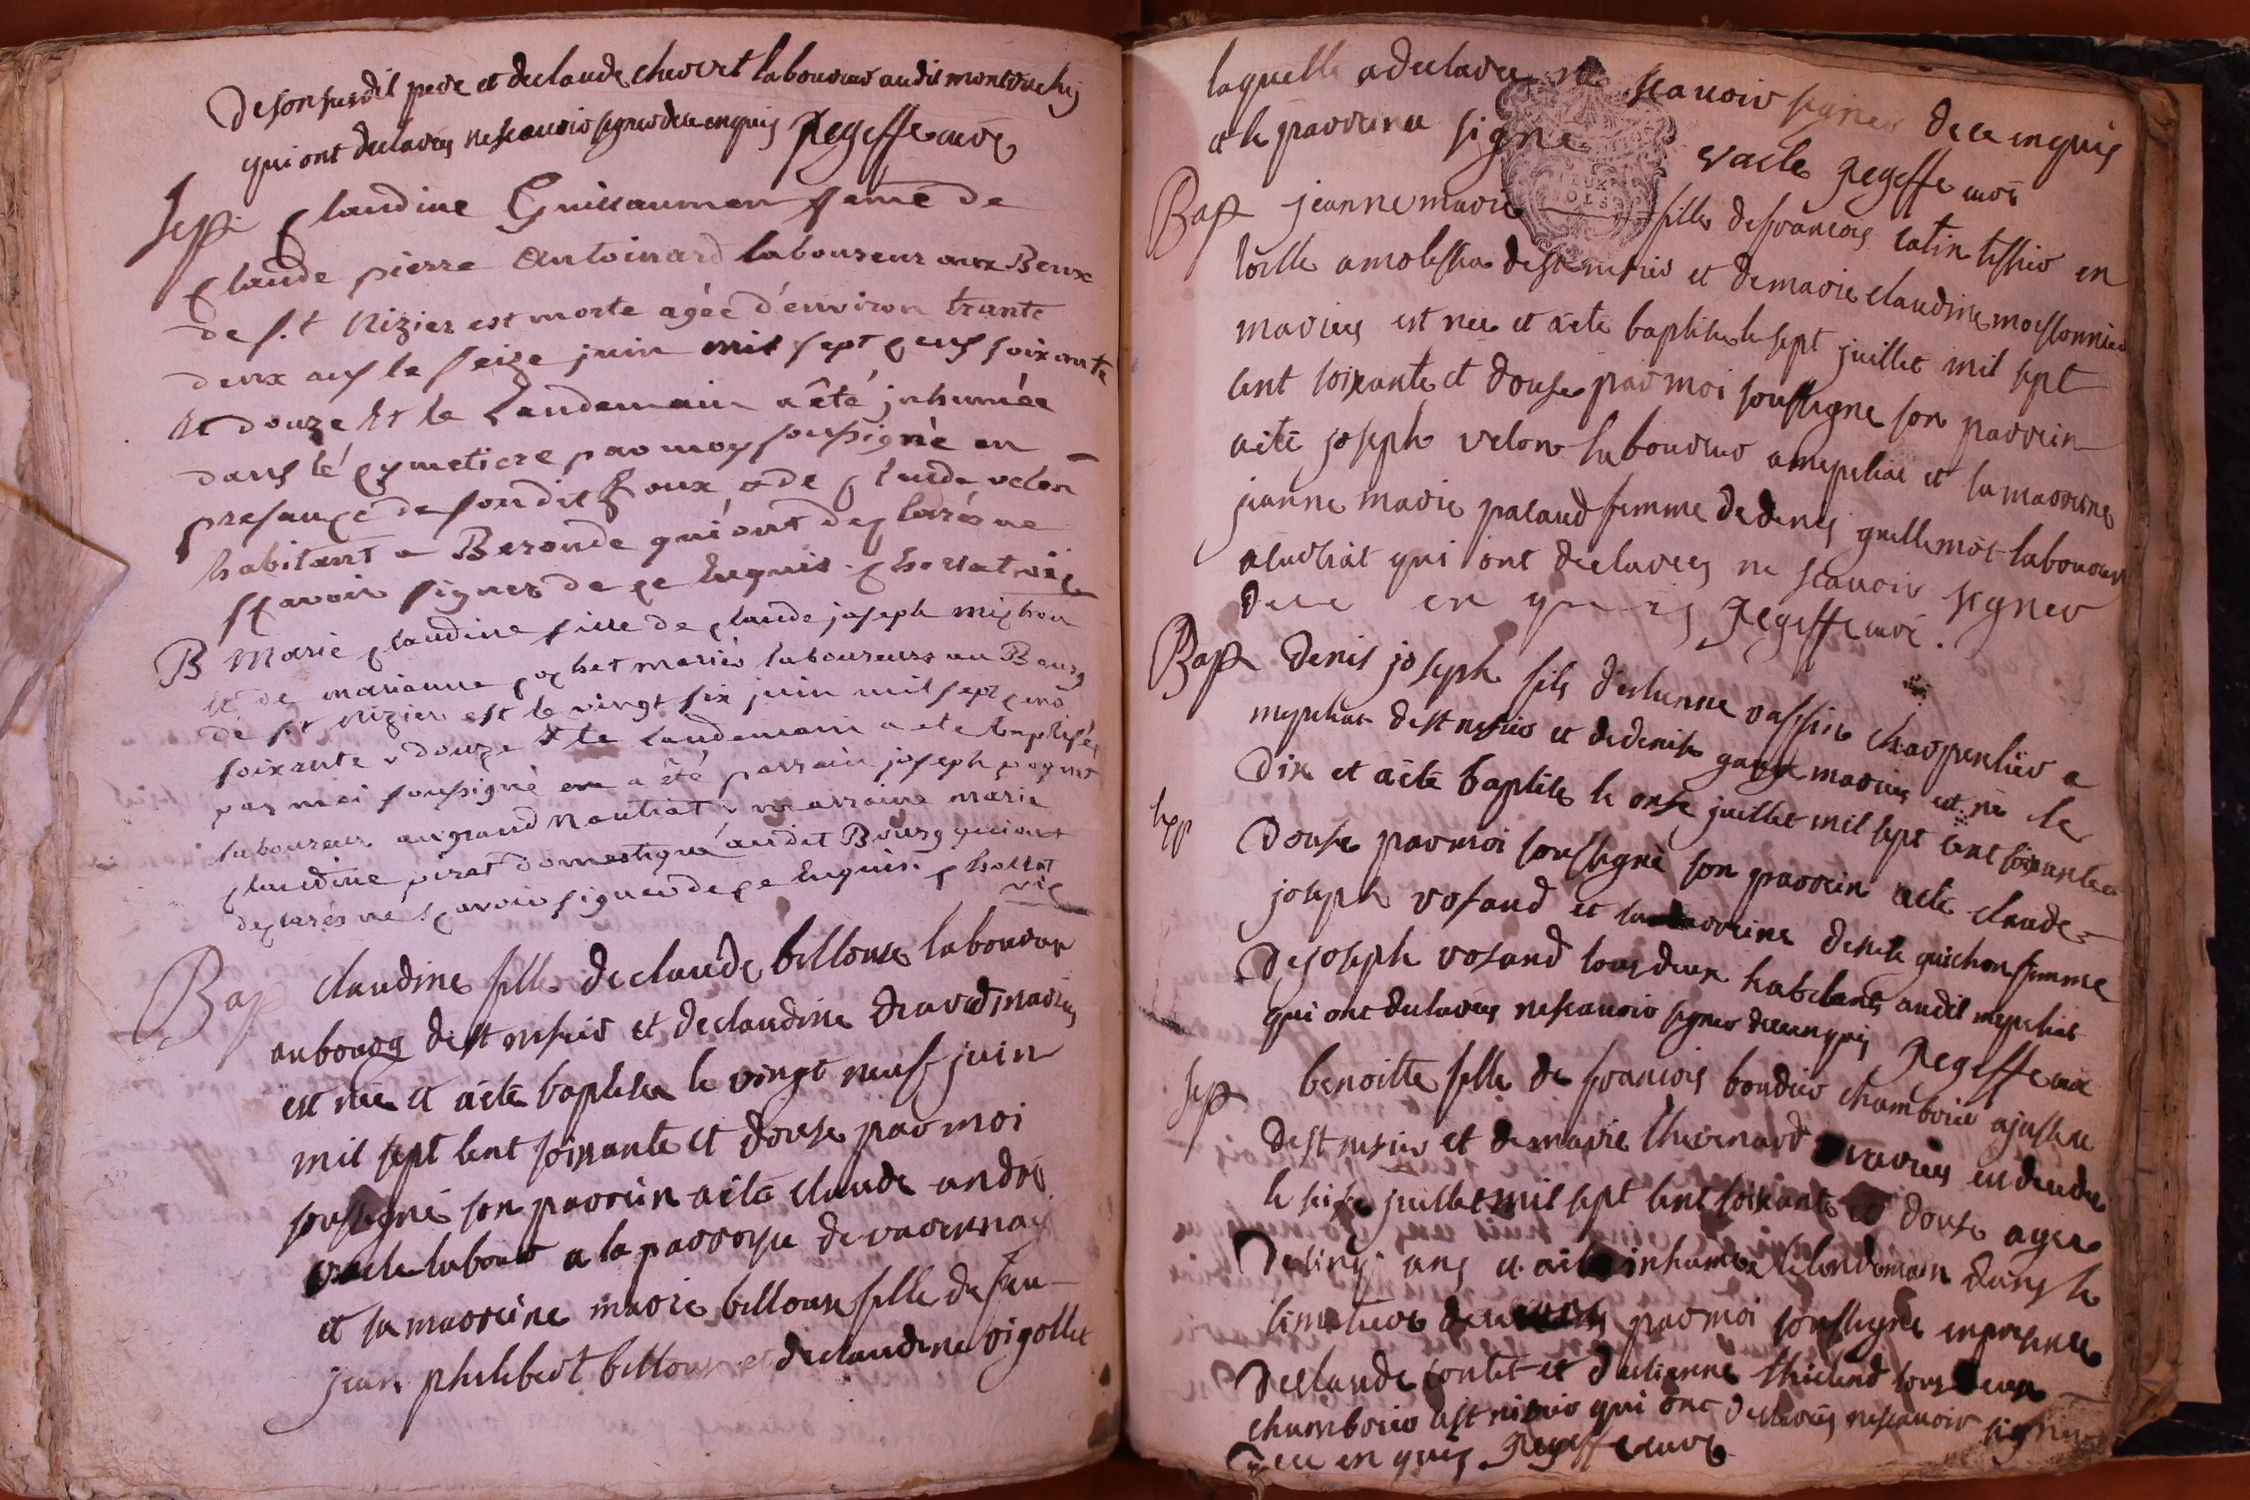 de son susdit pere et de claude chevret laboureur audit montrachy
qui ont declarés ne scavoir signer de ce enquis Jegeffe curé
Sep. Claudine Guillaumen feme de
Claude pierre Antoinard laboureur aux Beux
de s.t Nizier est morte agée d'environ trante
deux ans le seize juin mil sept cens soixante
et douze et le Landemain a été inhumée
dans le cymetiere par moy soussigné en
presance de sondit Epoux & de Claude velon
habitant a Beronde qui ont declarés ne
scavoir signer de ce Enquis. Chossat vic
B Marie claudine fille de claude joseph michon
et de marianne cochet mariés laboureurs au Bourg
de s.t Nizier est le vingt six juin mil sept cens
soixante & douze & le Landemain a eté baptisée
par moi soussigné en a été parrain joseph
laboureur au grand Montiat & marraine marie
claudine pirat domestique audit Bourg qui ont
declarés ne scavoir signer de ce Enquis. Chossat
vic
Bap claudine fille de claude billoux laboureur
au bourg de st nisier et de claudine dravet mariés
est née et a été baptisée le vingt neuf juin
mil sept cent soixante et douse par moi
soussigné son parrein a été claude andré
vacle labour a la parroisse de varennay
et sa marreine marie billoux fille de feu
jean philibert billoux et de claudine rigollet
laquelle a declarée ne scavoir signer de ce enquis
et le parrein a signé vacle Jegeffe curé
Bap jeanne marie fille de francois catin tissier en
toille a molissia de st nisier et de marie claudine moissonnier
mariés est née et a été baptisée le sept juillet mil sept
cent soixante et douse par moi soussigné son parrein
a été joseph velon laboureur a mepilliat et sa marreine
jeanne marie pacaud femme de denis guillemot laboureur
a qui ont declarés ne scavoir signer
de ce en quis Jegeffe curé.
Bap denis joseph fils d'estienne vassin charpentier a
mepilliat de st nisier et de denise gauge mariés est né le
dix et a été baptisé le onse juillet mil sept cent soixante et
sep
douse par moi soussigné son parrein a été claude
joseph vosand et sa marreine denise guichon femme
de joseph vosand tous deux habitants audit mepilliat
qui ont declarés ne scavoir signer de ce enquis Jegeffe curé
sep benoitte fille de francois boudier chambrier a
de st nisier et de marie thevenard mariés
le seise juillet mil sept cent soixante et douse agée
de cinq ans et a été inhumée le lendemain dans le
cimetiere par moi soussigné en presence
de claude contet et d'estienne thiebaud tous deux
chambrier a st nisier qui ont declarés ne scavoir signer
de ce en quis Jegeffe curé